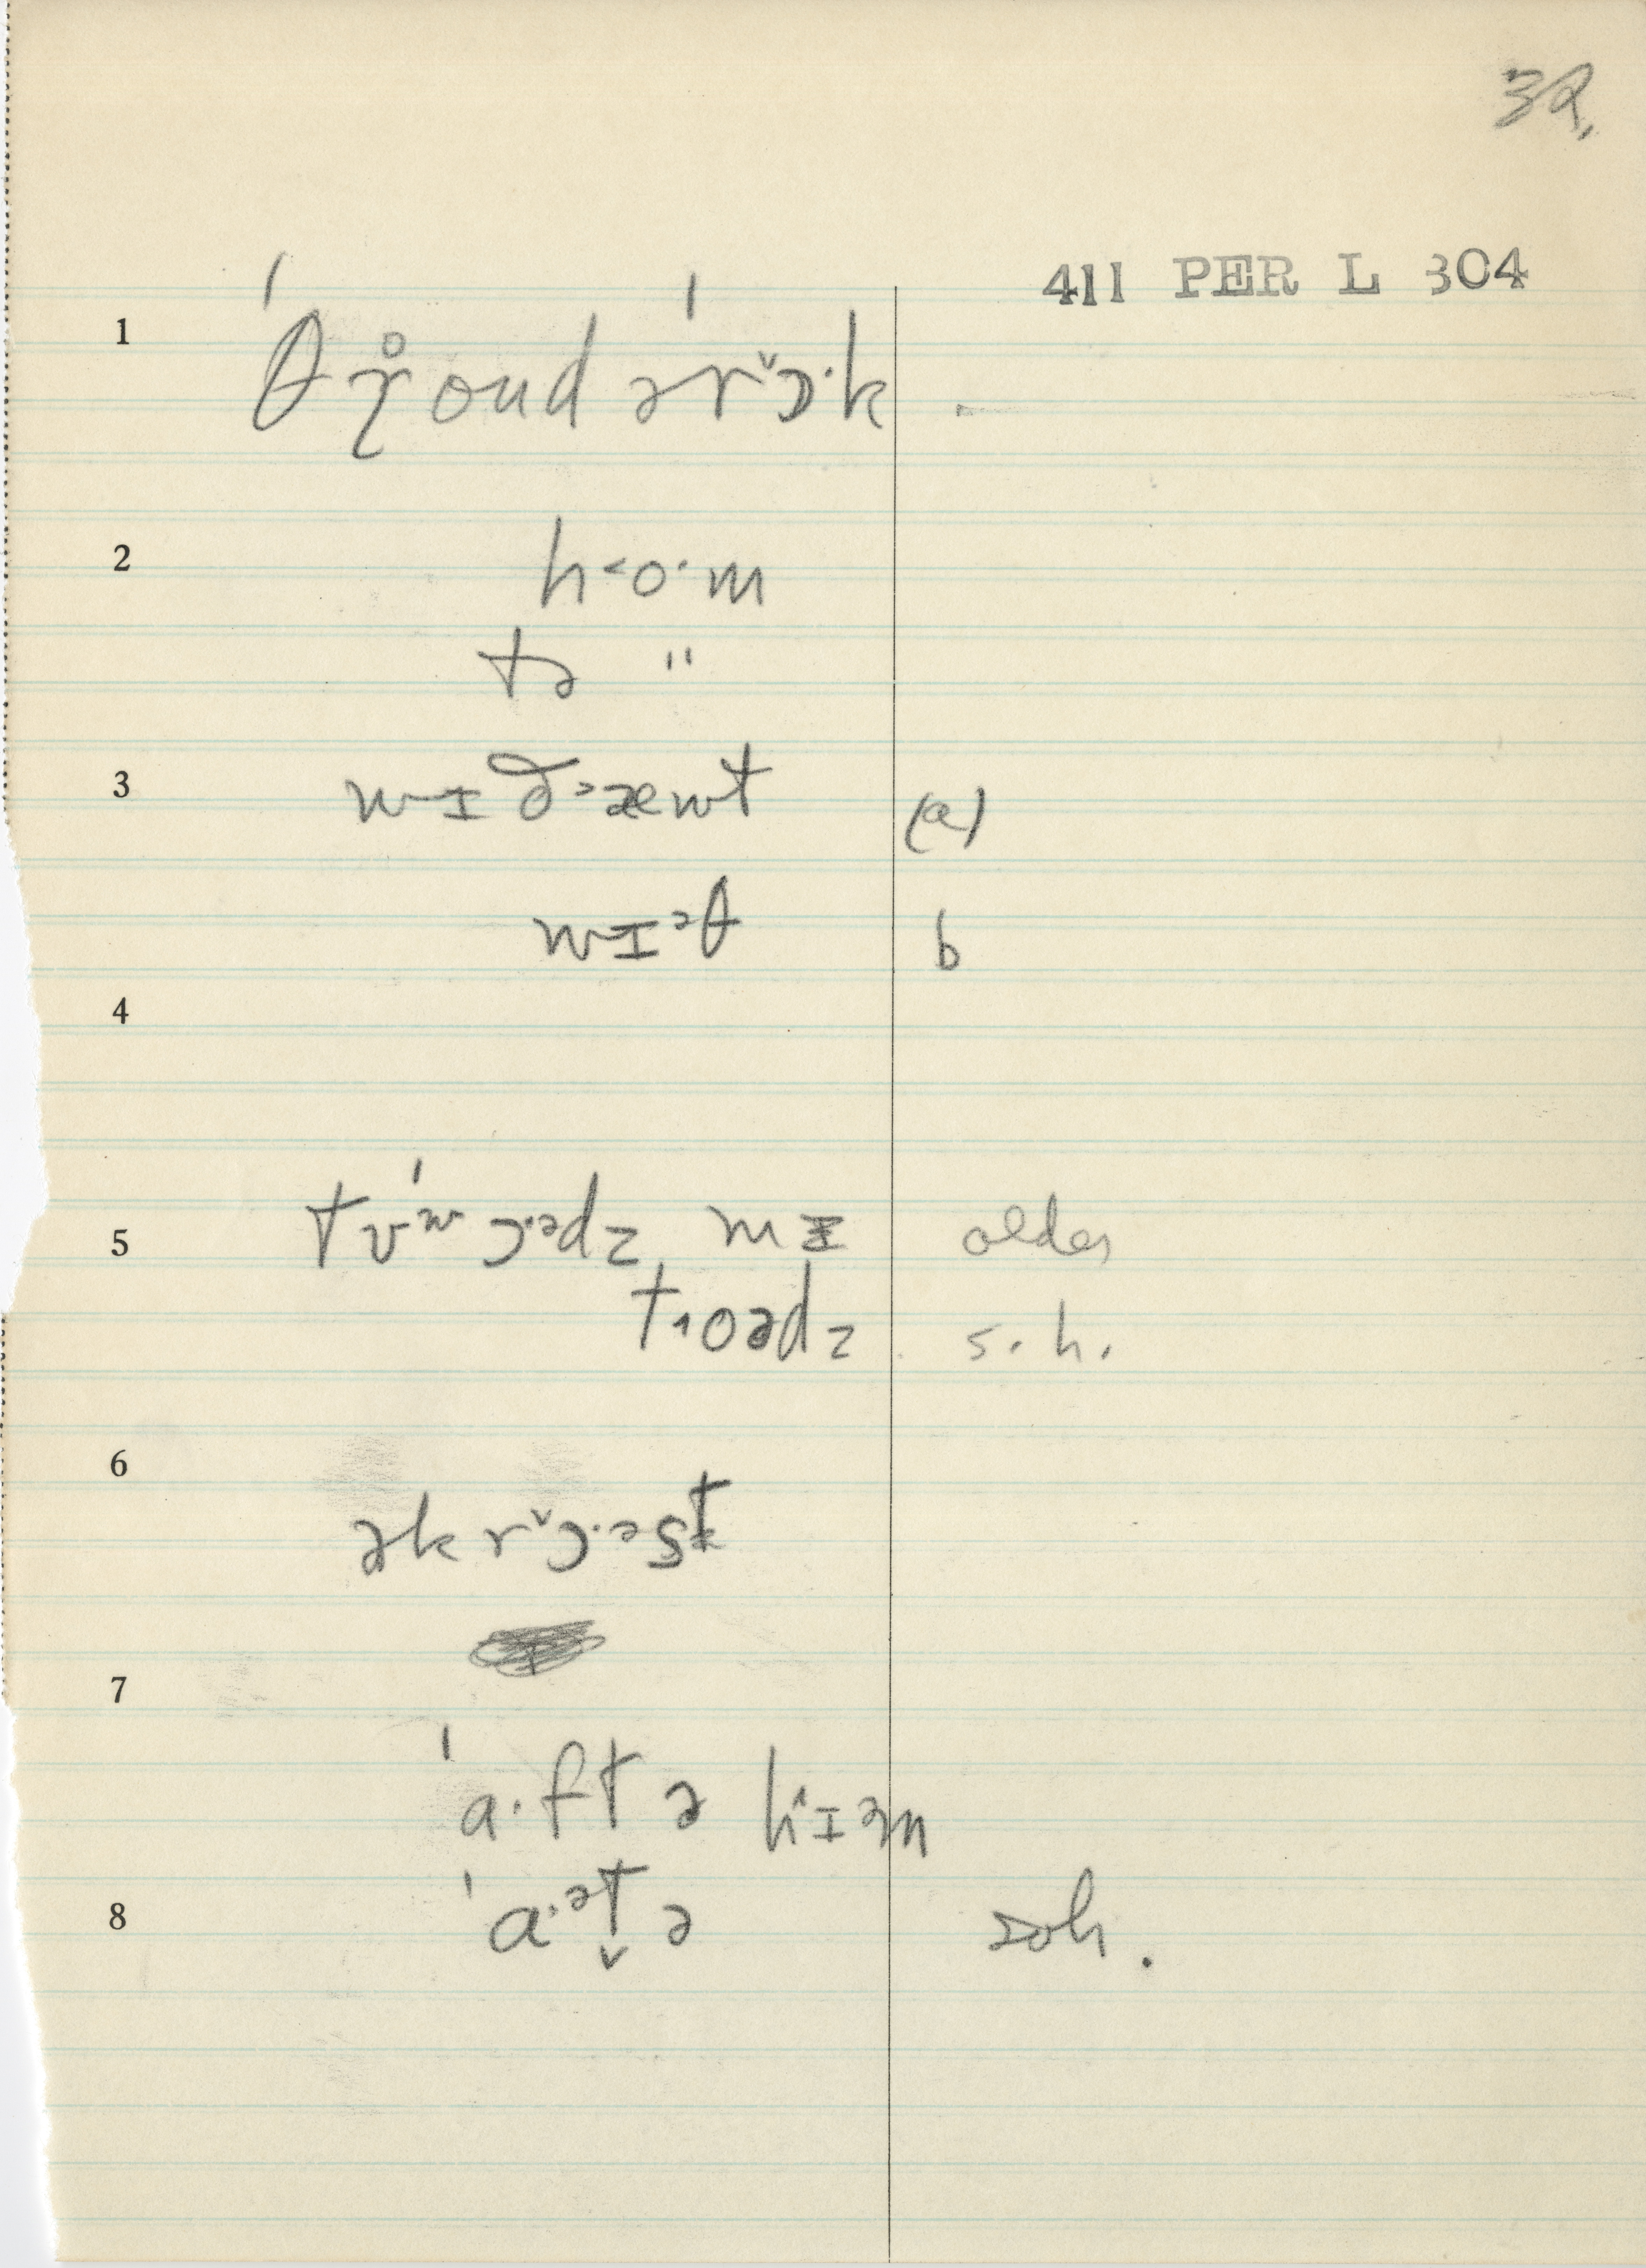 39.
411 PER L 304
1 ˈθɣ̊oud əˈrᵛɔ·k .
2 h˂o·m
tə "
3 wɪð˃æwt (a)
wɪᵊθ b
4
5 tʊˈʷɔ·ᵊdz mɪ older
t˔oədz s. h.
6 əkrᵛɔ·ᵊst
7
ˈa·ftə hɪəm
8 ˈa·ᵊt̬ə